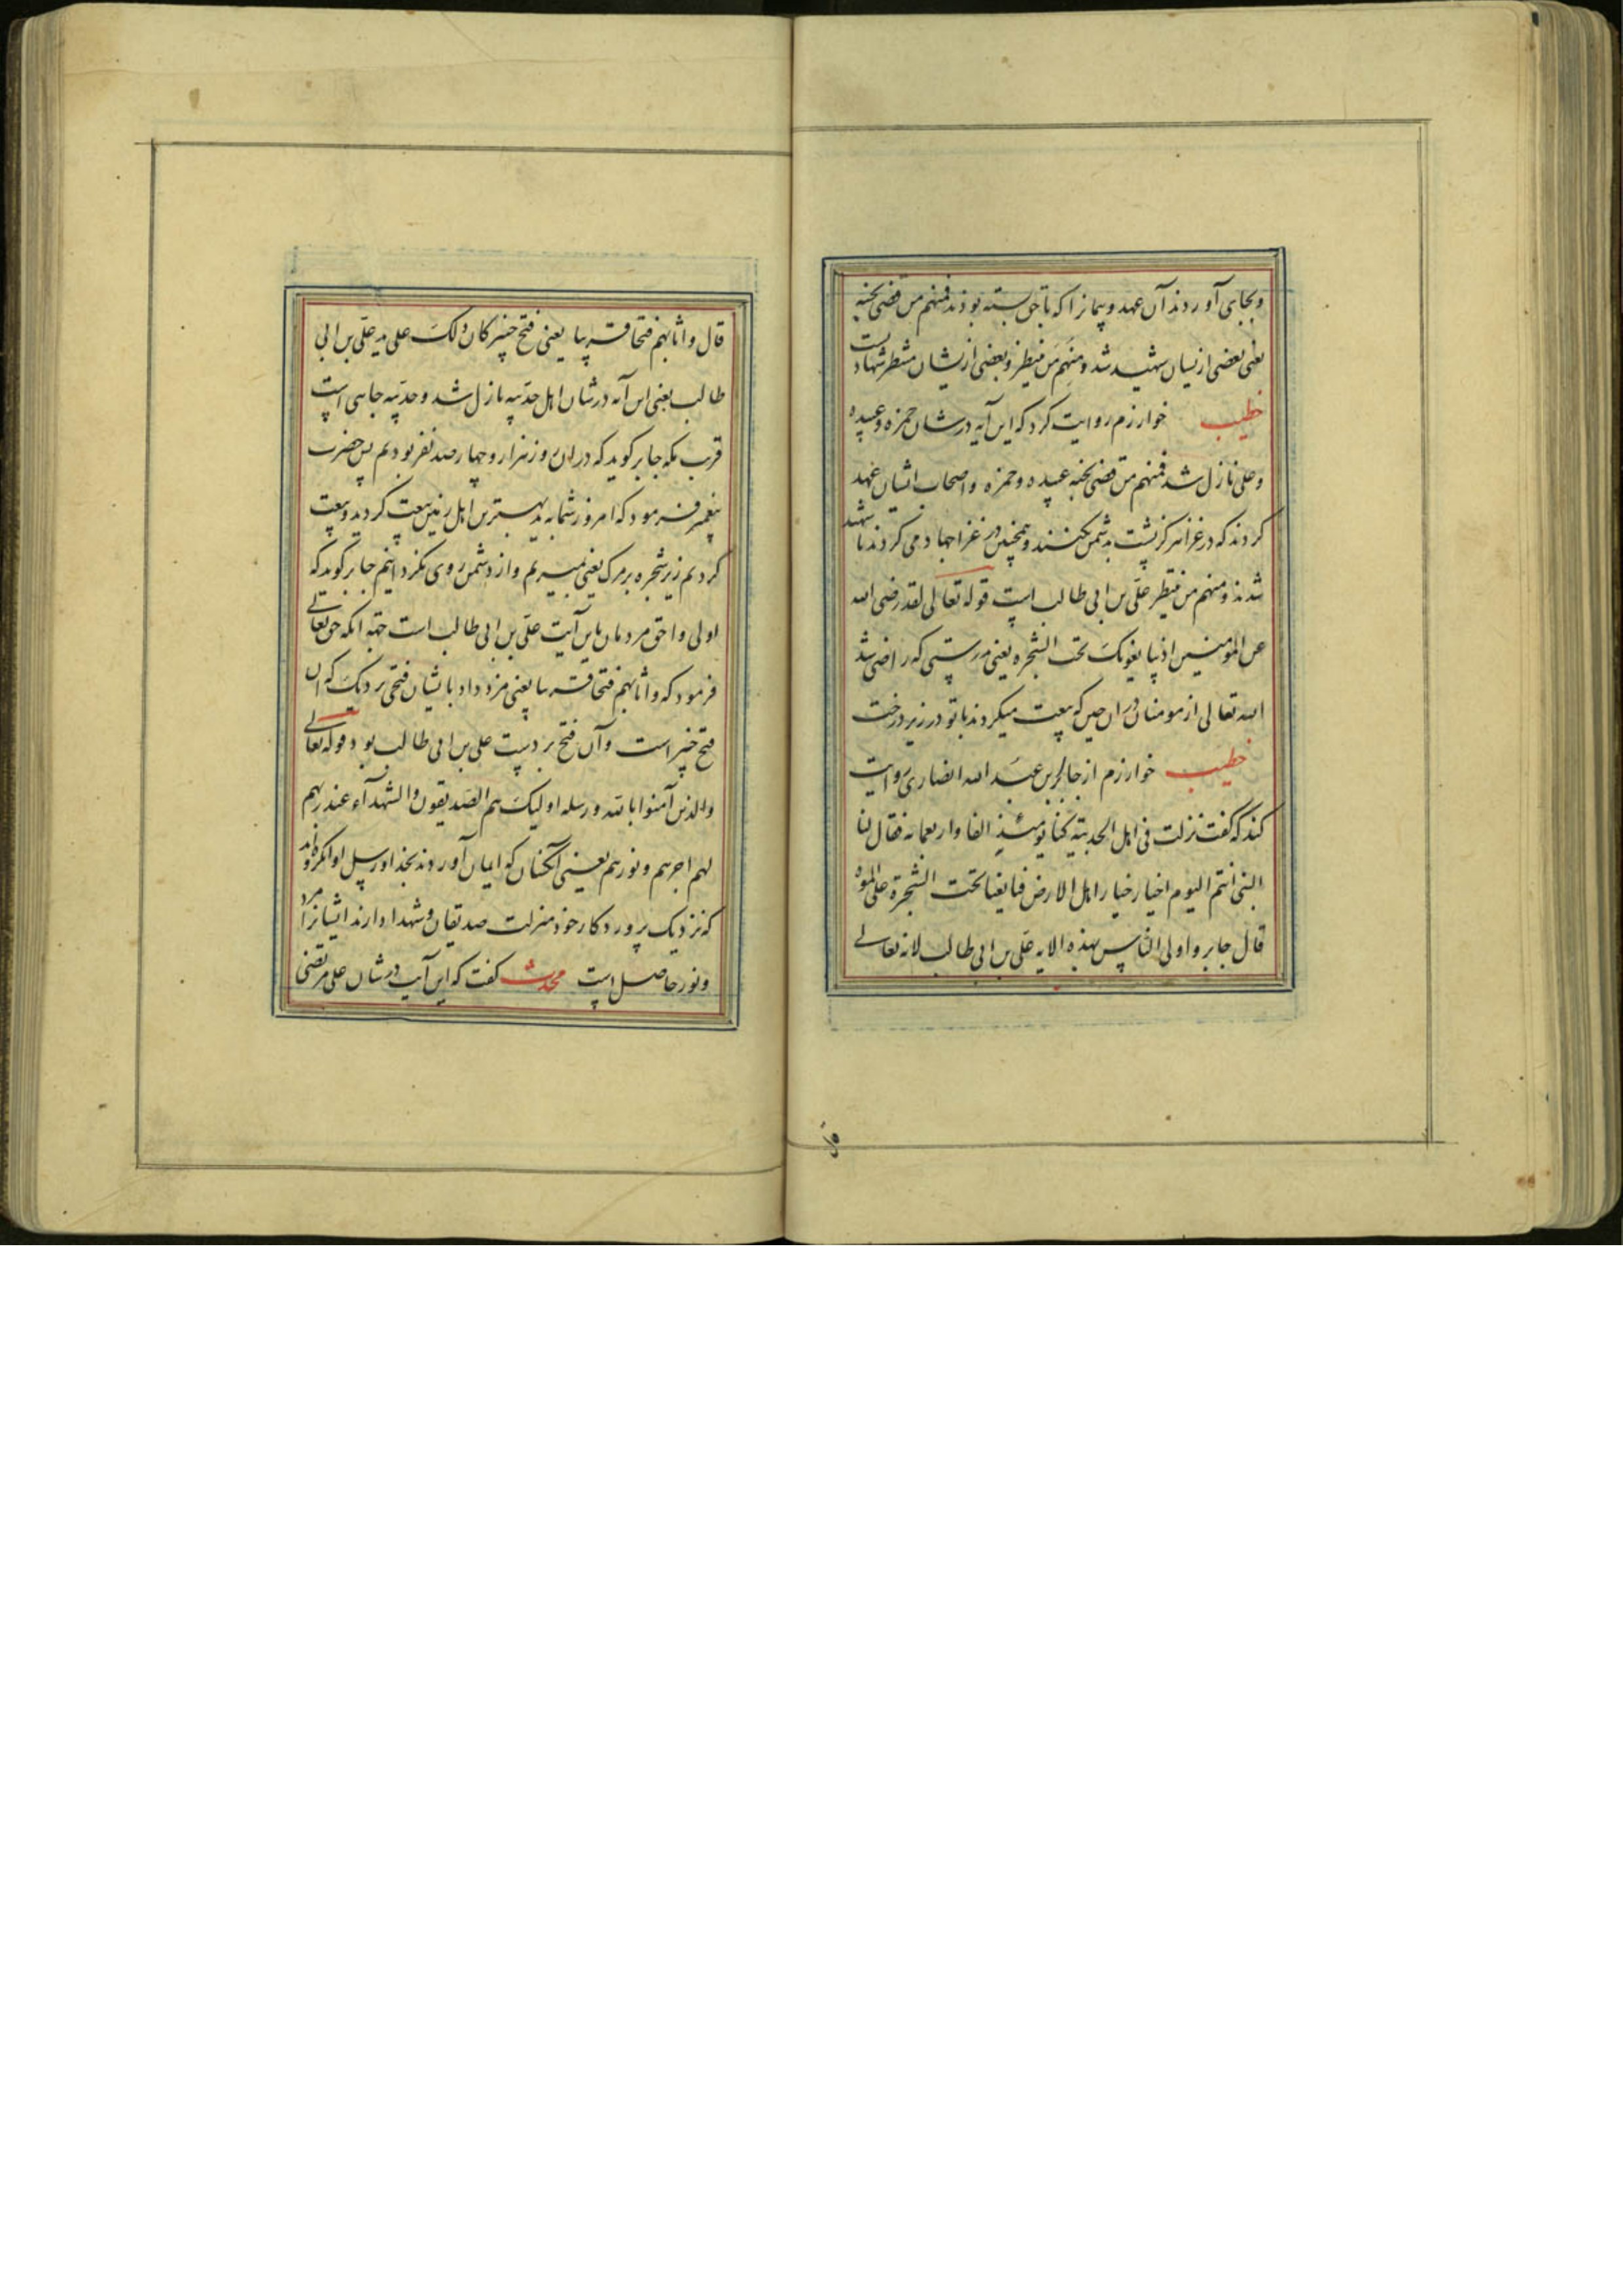 وبجای آوردند آن عهد و پیمانرا که باحق بسته بودند فمنهم من قضی نحبه
یعنی بعضی ازیشان شهید شد ومنهم من ینتظر و بعضی ازیشان منتظر شهادت است
خطیب خوارزم روایت کرد که این آیه در شان حمزه و عبیده
و علی نازل شد فمنهم من قضی نحبه عبیده و حمزه و اصحاب ایشان عهد
کردند که در غزا هرگز پشت بدشمن نکنند و همچنین در غزا جهاد می کردند تا شهید
شدند و منهم من ینتظر علی بن ابی طالب است قوله تعالی لقد رضی الله
عن المومنین اذ یبایعونک تحت الشجره یعنی بدرستی که راضی شد
الله تعالی از مومنان در ان حین که بیعت میکردند با تو در زیر درخت
خطیب خوارزم از جابر بن عبد الله انصاری روایت
کند که گفت نزلت فی اهل الحدیبیه کنا یومئذ الفا و اربعمائه فقال لنا
النبی انتم الیوم اخیار خیار اهل الارض فبایعنا تحت الشجرة علی الموت
قال جابر و اولی الناس بهذه الایه علی بن ابی طالب لانه تعالی
قال و اثابهم فتحا قریبا یعنی فتح خیبر کان ذلک علی ید علی بن ابی
طالب یعنی این آیه در شان اهل حدیبیه نازل شد و حدیبیه جایی است
قرب مکه جابر گوید که در ان روز هزار و چهار صد نفر بودیم پس حضرت
پیغمبر فرمود که امروز شما بهترین اهل زمین بیعت کردید و بیعت
کردیم زیر شجره بر مرک یعنی بمیریم و از دشمن روی نگردانیم جابر گوید که
اولی و احق مردمان باین آیت علی بن ابی طالب است جهة انکه حق تعالی
فرمود که و اثابهم فتحا قریبا یعنی مزد داد بایشان فتحی نزدیک که آن
فتح خیبر است و آن فتح بر دست علی بن ابی طالب بود قوله تعالی
والذین آمنوا بالله و رسله اولیک هم الصدیقون و الشهدآء عند ربهم
لهم اجرهم و نورهم یعنی آنکسان که ایمان آوردند بخدا و رسل او
که نزدیک پروردکار خود منزلت صدیقان و شهدا دارند ایشانرا مزد
و نور حاصل است محدث گفت که این آیت در شان علی مرتضی